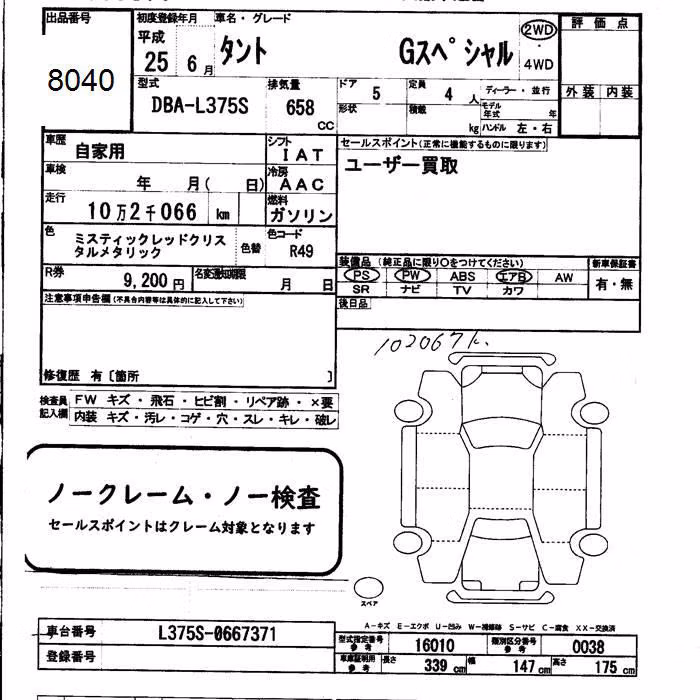 出品番号
8040
初度登録年月
平成
25 6月
車名・グレード
タント Gスペシャル
2WD
・
4WD
評価点
外装 内装
型式
DBA-L375S
排気量
658
cc
ドア
5
形状
定員
4 人
積載
kg
ディーラー・並行
モデル
年式 年
ハンドル 左・右
車歴
自家用
シフト
IAT
車検
年 月( 日)
冷房
AAC
走行
10万2千066 km
燃料
ガソリン
色
ミスティックレッドクリス
タルメタリック
色替
色コード
R49
R券
9,200円
名変通知期限
月 日
セールスポイント(正常に機能するものに限ります)
ユーザー買取
装備品 (純正品に限り〇をつけてください)
PS PW ABS エアB AW
SR ナビ TV カワ
新車保証書
有・無
後日品
注意事項申告欄(不具合内容等は具体的に記入して下さい)
修復歴 有〔箇所 〕
検査員
記入欄
FW キズ・飛石・ヒビ割・リペア跡・×要
内装 キズ・汚レ・コゲ・穴・スレ・キレ・破レ
102067k.
ノークレーム・ノー検査
セールスポイントはクレーム対象となります
スペア
A-キズ E-エクボ U-凹み W-補修跡 S-サビ C-腐食 XX-交換済
車台番号
L375S-0667371
登録番号
型式指定番号
参考
16010
類別区分番号
参考
0038
車庫証明用
参考
長さ
339 cm
幅
147 cm
高さ
175 cm